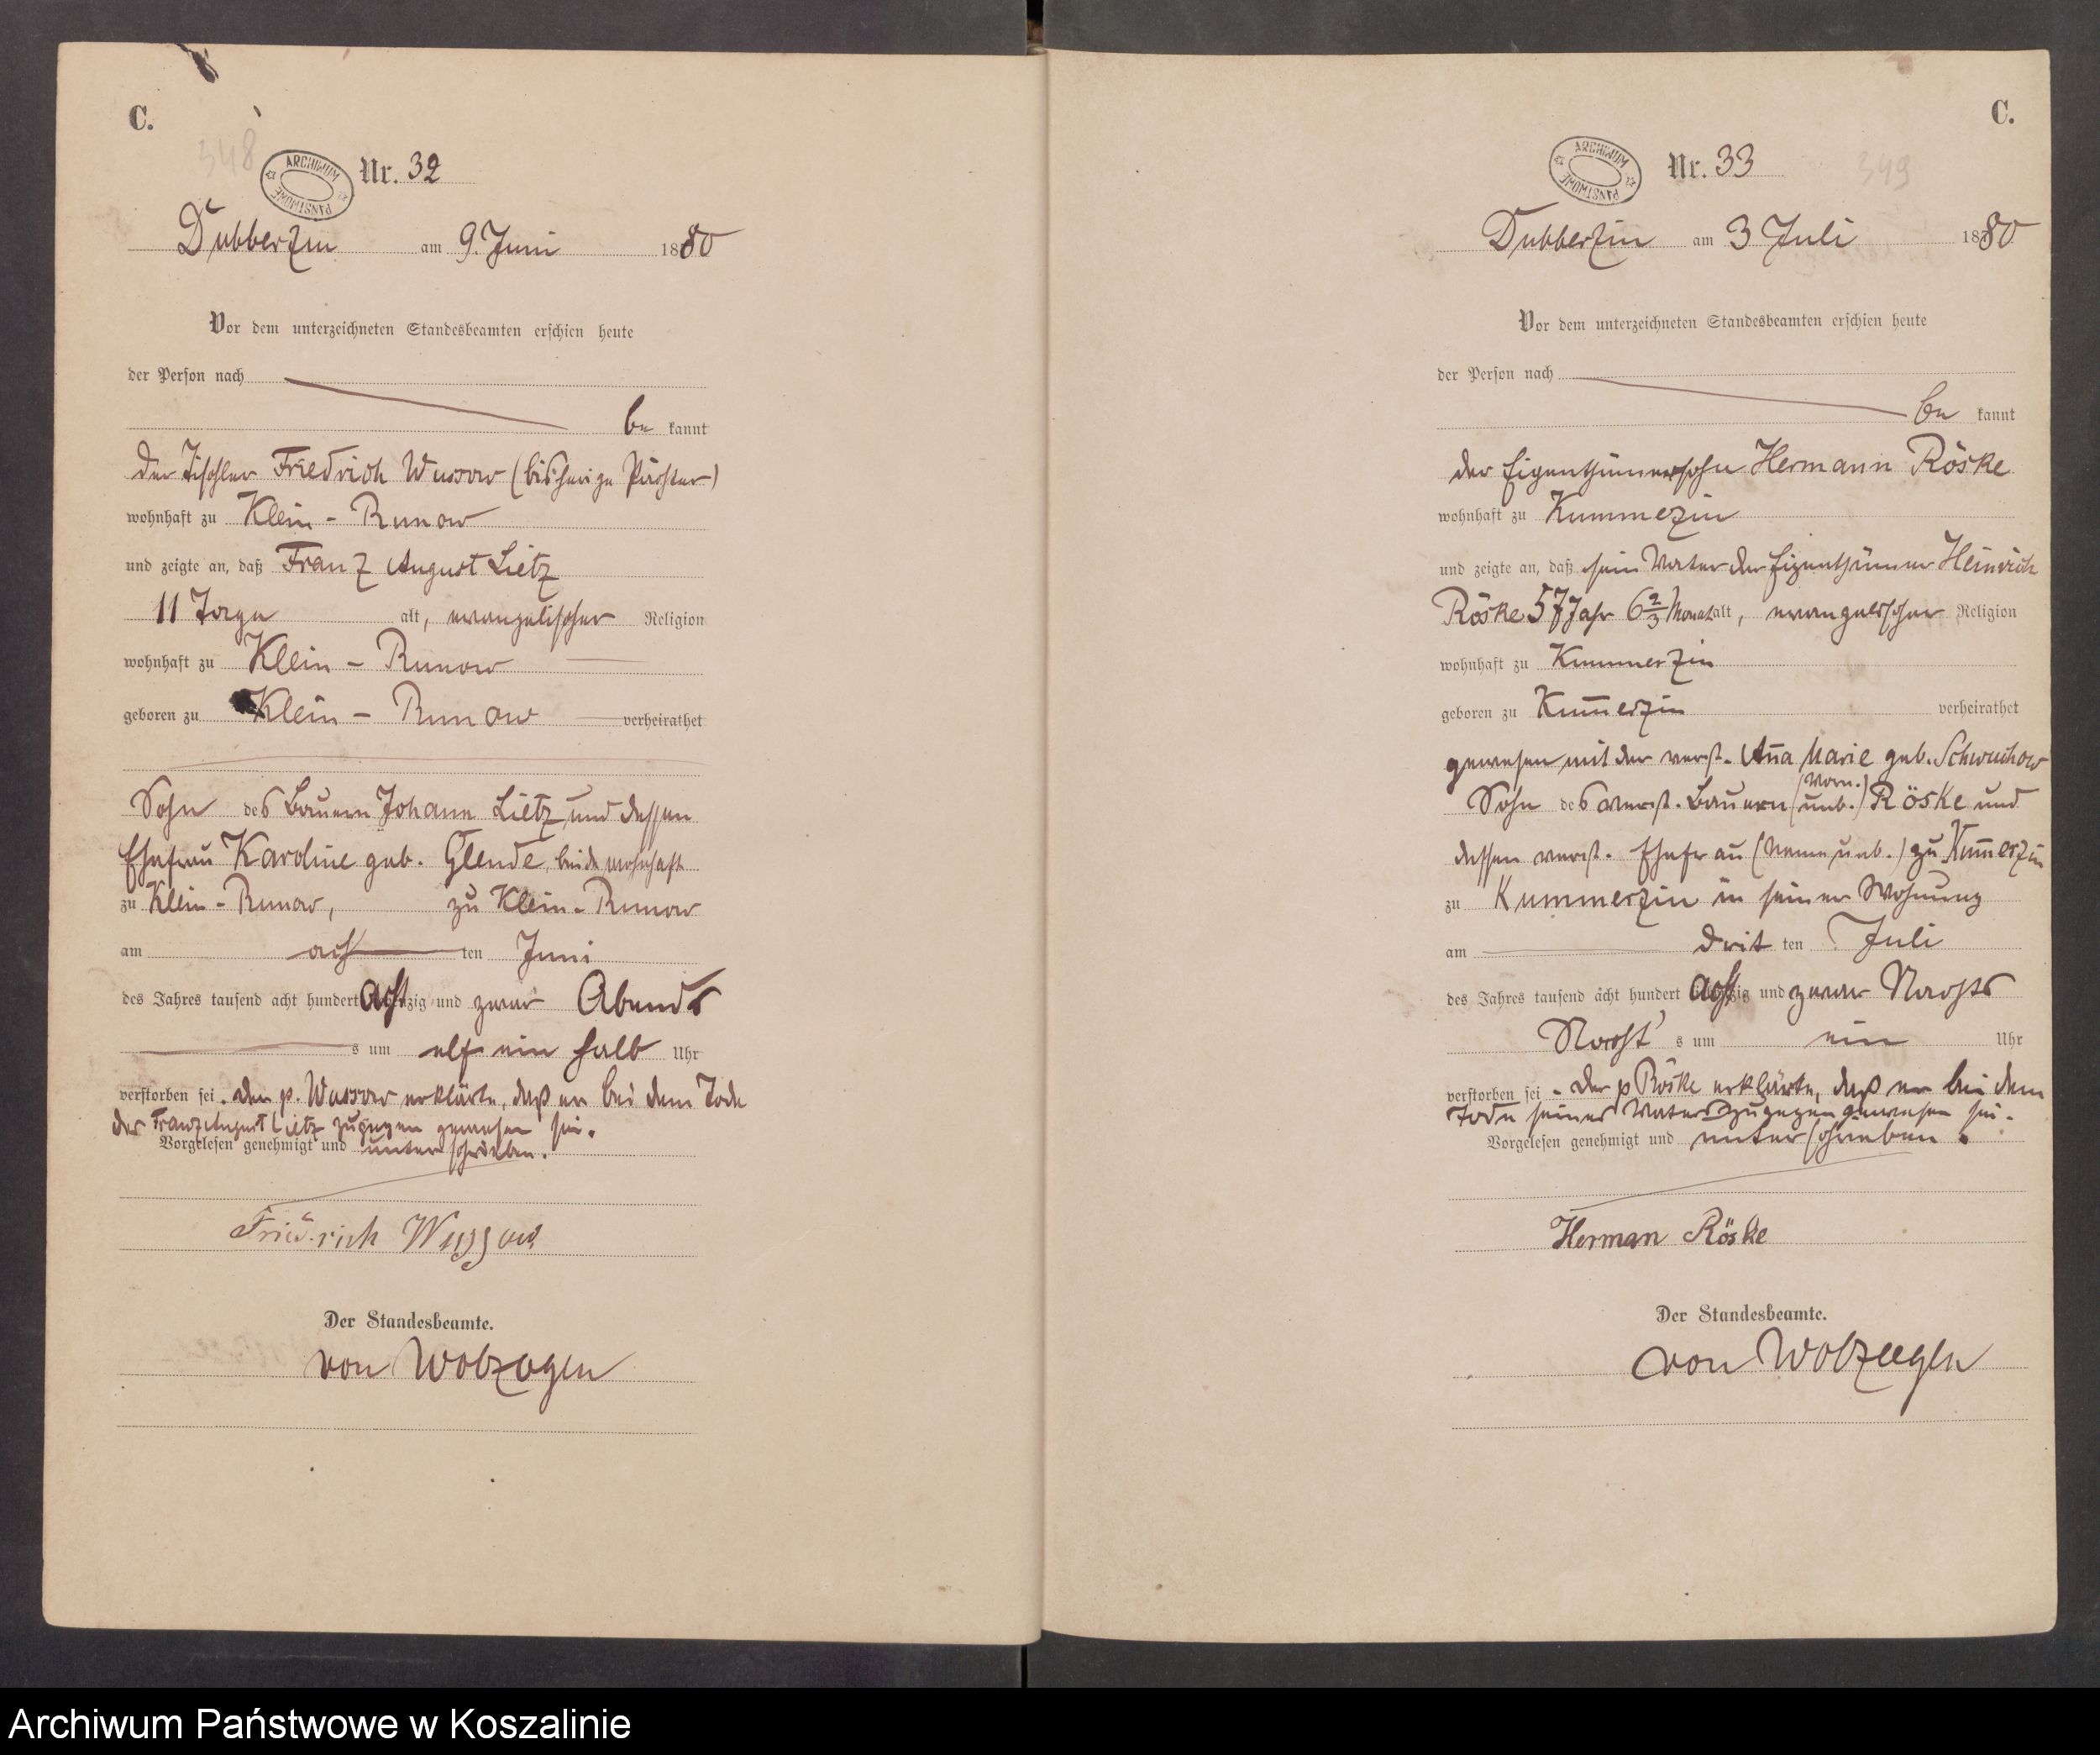 C.
348
ARCHIWUM PAŃSTWOWE
Nr. 32
Dubberzin am 9. Juni 1880
Vor dem unterzeichneten Standesbeamten erschien heute
der Person nach
be kannt
der Tischler Friedrich Wussow (bisherige Pächter)
wohnhaft zu Klein - Runow
und zeigte an, daß Franz August Lietz
11 Tage alt, evangelischer Religion
wohnhaft zu Klein - Runow
geboren zu Klein - Runow verheirathet
Sohn des Bauern Johann Lietz und dessen
Ehefrau Karoline geb. Glende, beide wohnhaft
zu Klein - Runow, zu Klein - Runow
am acht ten Juni
des Jahres tausend acht hundert achtzig und zwar Abends
s um elf ein halb Uhr
verstorben sei. der p. Wussow erklärte, daß er bei dem Tode
der Franz August Lietz zugegen gewesen sei.
Vorgelesen genehmigt und unterschrieben.
Friedrich Wussow
Der Standesbeamte.
von Wolzogen
C.
349
ARCHIWUM PAŃSTWOWE
Nr. 33
Dubberzin am 3 Juli 1880
Vor dem unterzeichneten Standesbeamten erschien heute
der Person nach
be kannt
der Eigenthümersohn Hermann Röske
wohnhaft zu Kummezin
und zeigte an, daß sein Vater der Eigenthümer Heinrich
Röske 57 Jahr 6 2/3 Monat alt, evangelischer Religion
wohnhaft zu Kummerzin
geboren zu Kum̅erzin verheirathet
gewesen mit der verst. An̅a Marie geb. Schwuchow
Sohn des verst. Bauern (Vorn. unb.) Röske und
dessen verst. Ehefrau (Name unb.) zu Kum̅erzin
zu Kummerzin in seiner Wohnung
am drit ten Juli
des Jahres tausend acht hundert achtzig und zwar Nachts
Nacht's um ein Uhr
verstorben sei. der p Röske erklärte, daß er bei dem
Tode seines Vaters zugegen gewesen sei.
Vorgelesen genehmigt und unterschrieben.
Herman Röske
Der Standesbeamte.
von Wolzogen
Archiwum Państwowe w Koszalinie